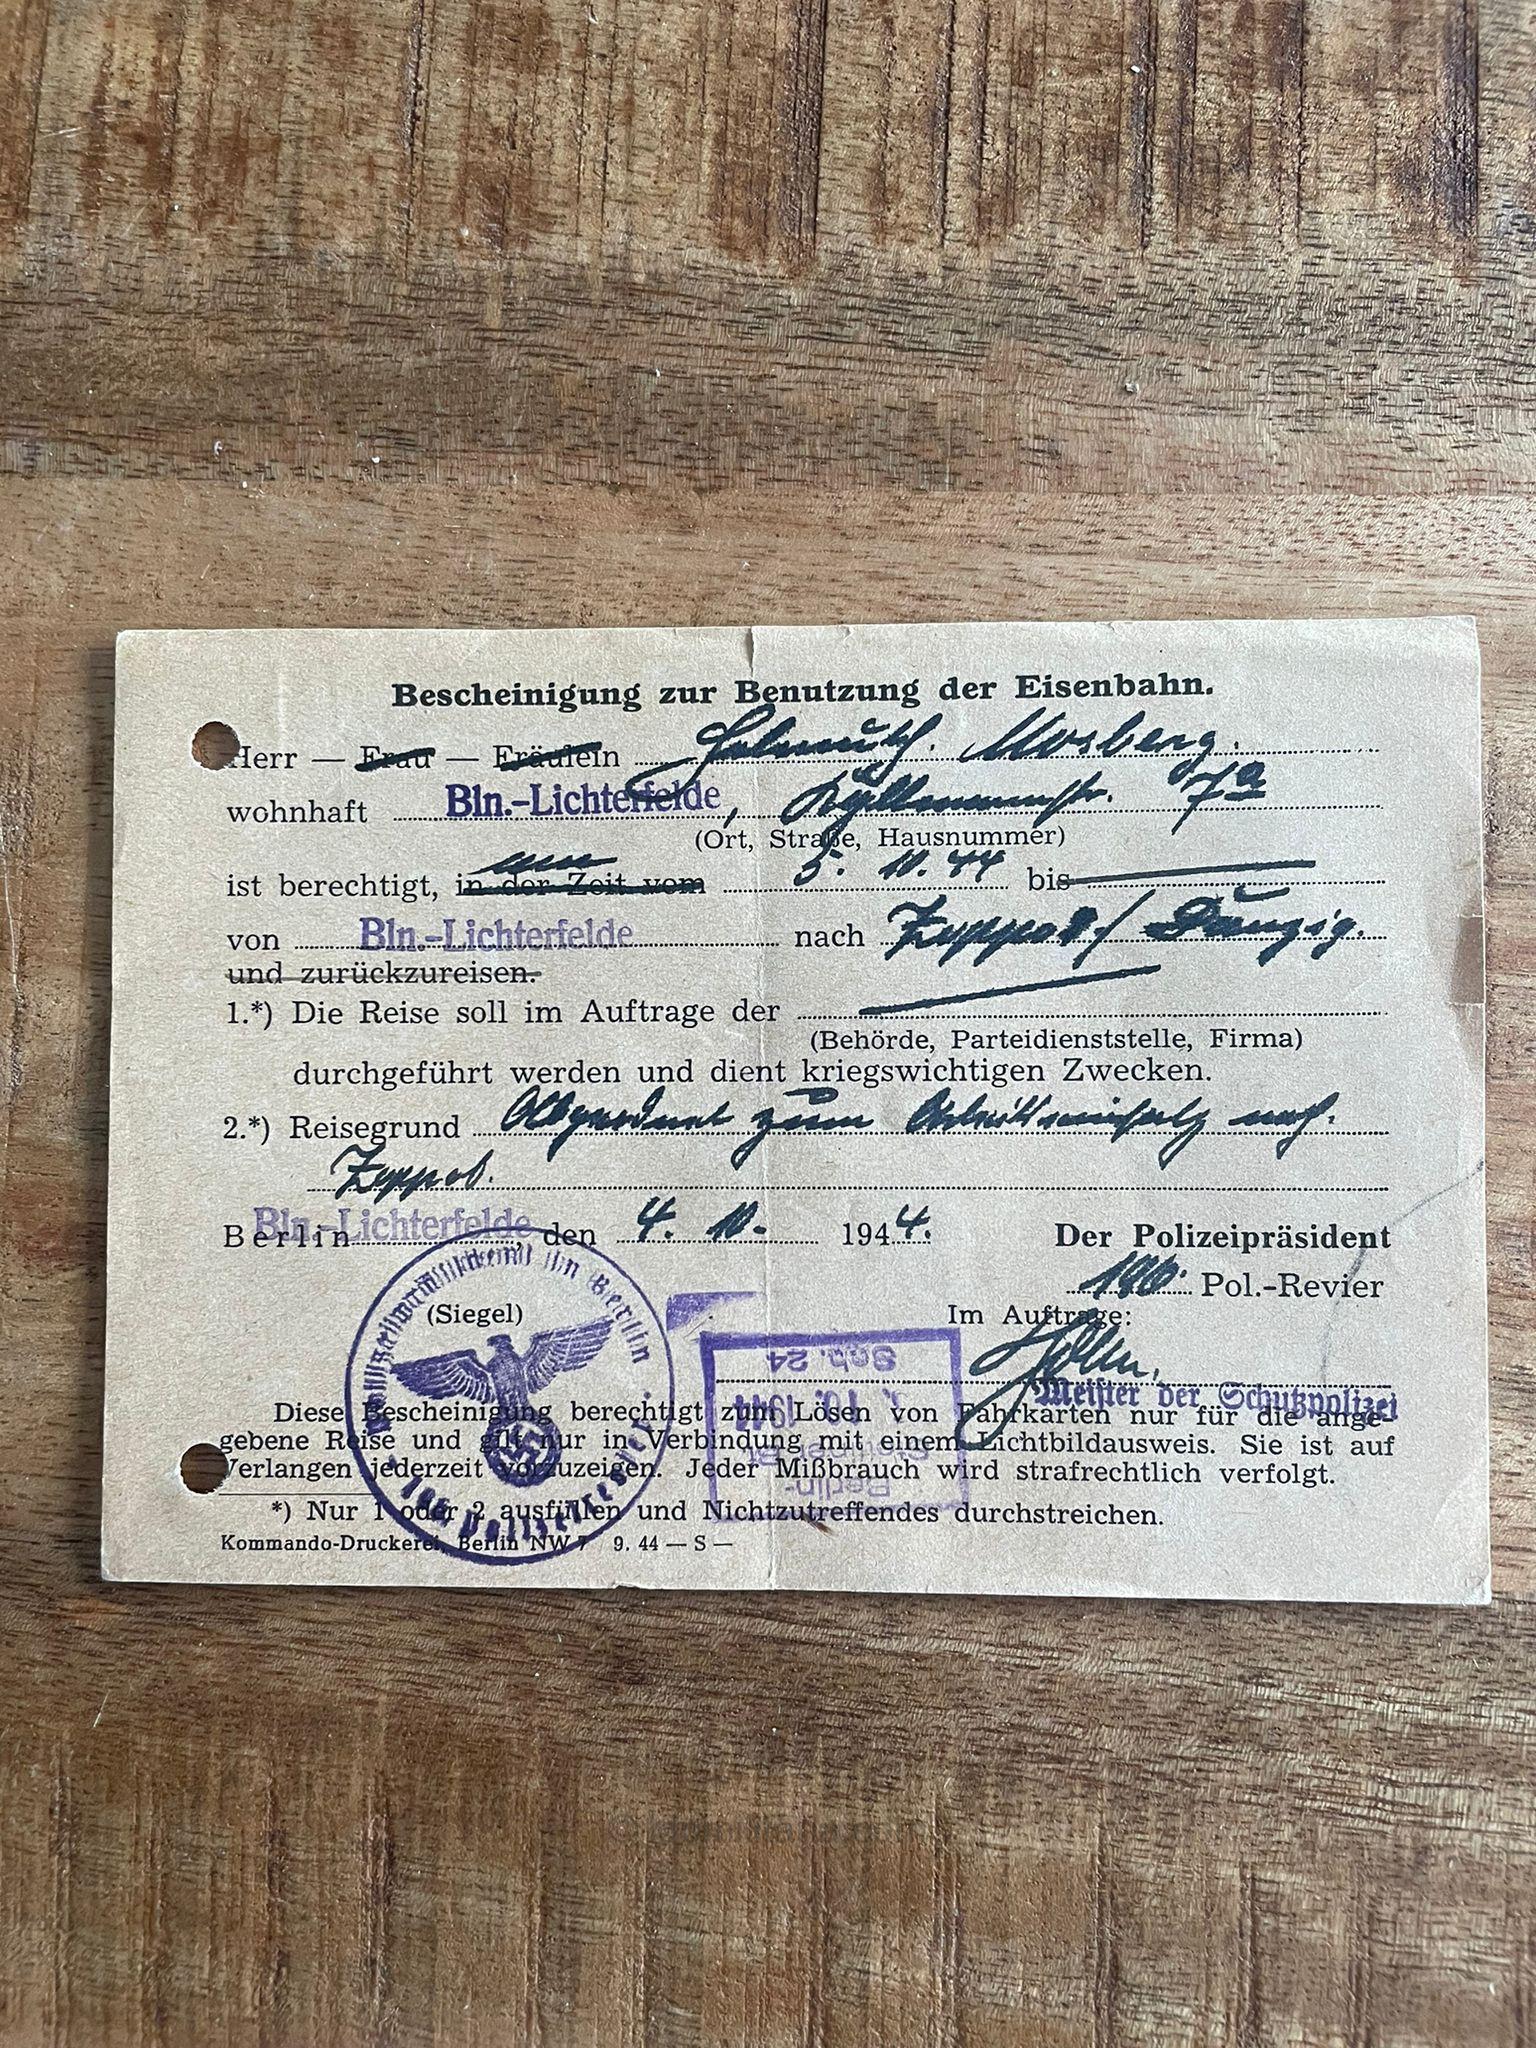 Bescheinigung zur Benutzung der Eisenbahn.
Herr — Frau — Fräulein Helmuth Mosberg.
wohnhaft Bln.-Lichterfelde, Kyllmannstr. 7a
(Ort, Straße, Hausnummer)
am
ist berechtigt, in der Zeit vom 5. 10. 44 bis
von Bln.-Lichterfelde nach Zoppot / Danzig.
und zurückzureisen.
1.*) Die Reise soll im Auftrage der
(Behörde, Parteidienststelle, Firma)
durchgeführt werden und dient kriegswichtigen Zwecken.
2.*) Reisegrund Abgeordnet zum Arbeitseinsatz nach
Zoppot.
Berlin Bln.-Lichterfelde, den 4. 10. 1944.
Der Polizeipräsident
196. Pol.-Revier
(Siegel)
Im Auftrage:
Meister der Schutzpolizei
in Berlin
Polizeirevier
Sep. 24
10. 1944
Berlin-
Diese Bescheinigung berechtigt zum Lösen von Fahrkarten nur für die ange-
gebene Reise und gilt nur in Verbindung mit einem Lichtbildausweis. Sie ist auf
Verlangen jederzeit vorzuzeigen. Jeder Mißbrauch wird strafrechtlich verfolgt.
*) Nur 1 oder 2 ausfüllen und Nichtzutreffendes durchstreichen.
Kommando-Druckerei, Berlin NW 7 9. 44 — S —